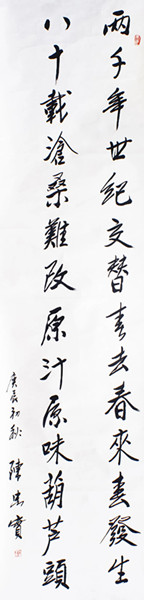 兩千年世紀交替春去春來春發生
八十載滄桑難改原汁原味葫芦頭
庚辰初秋 陳忠實